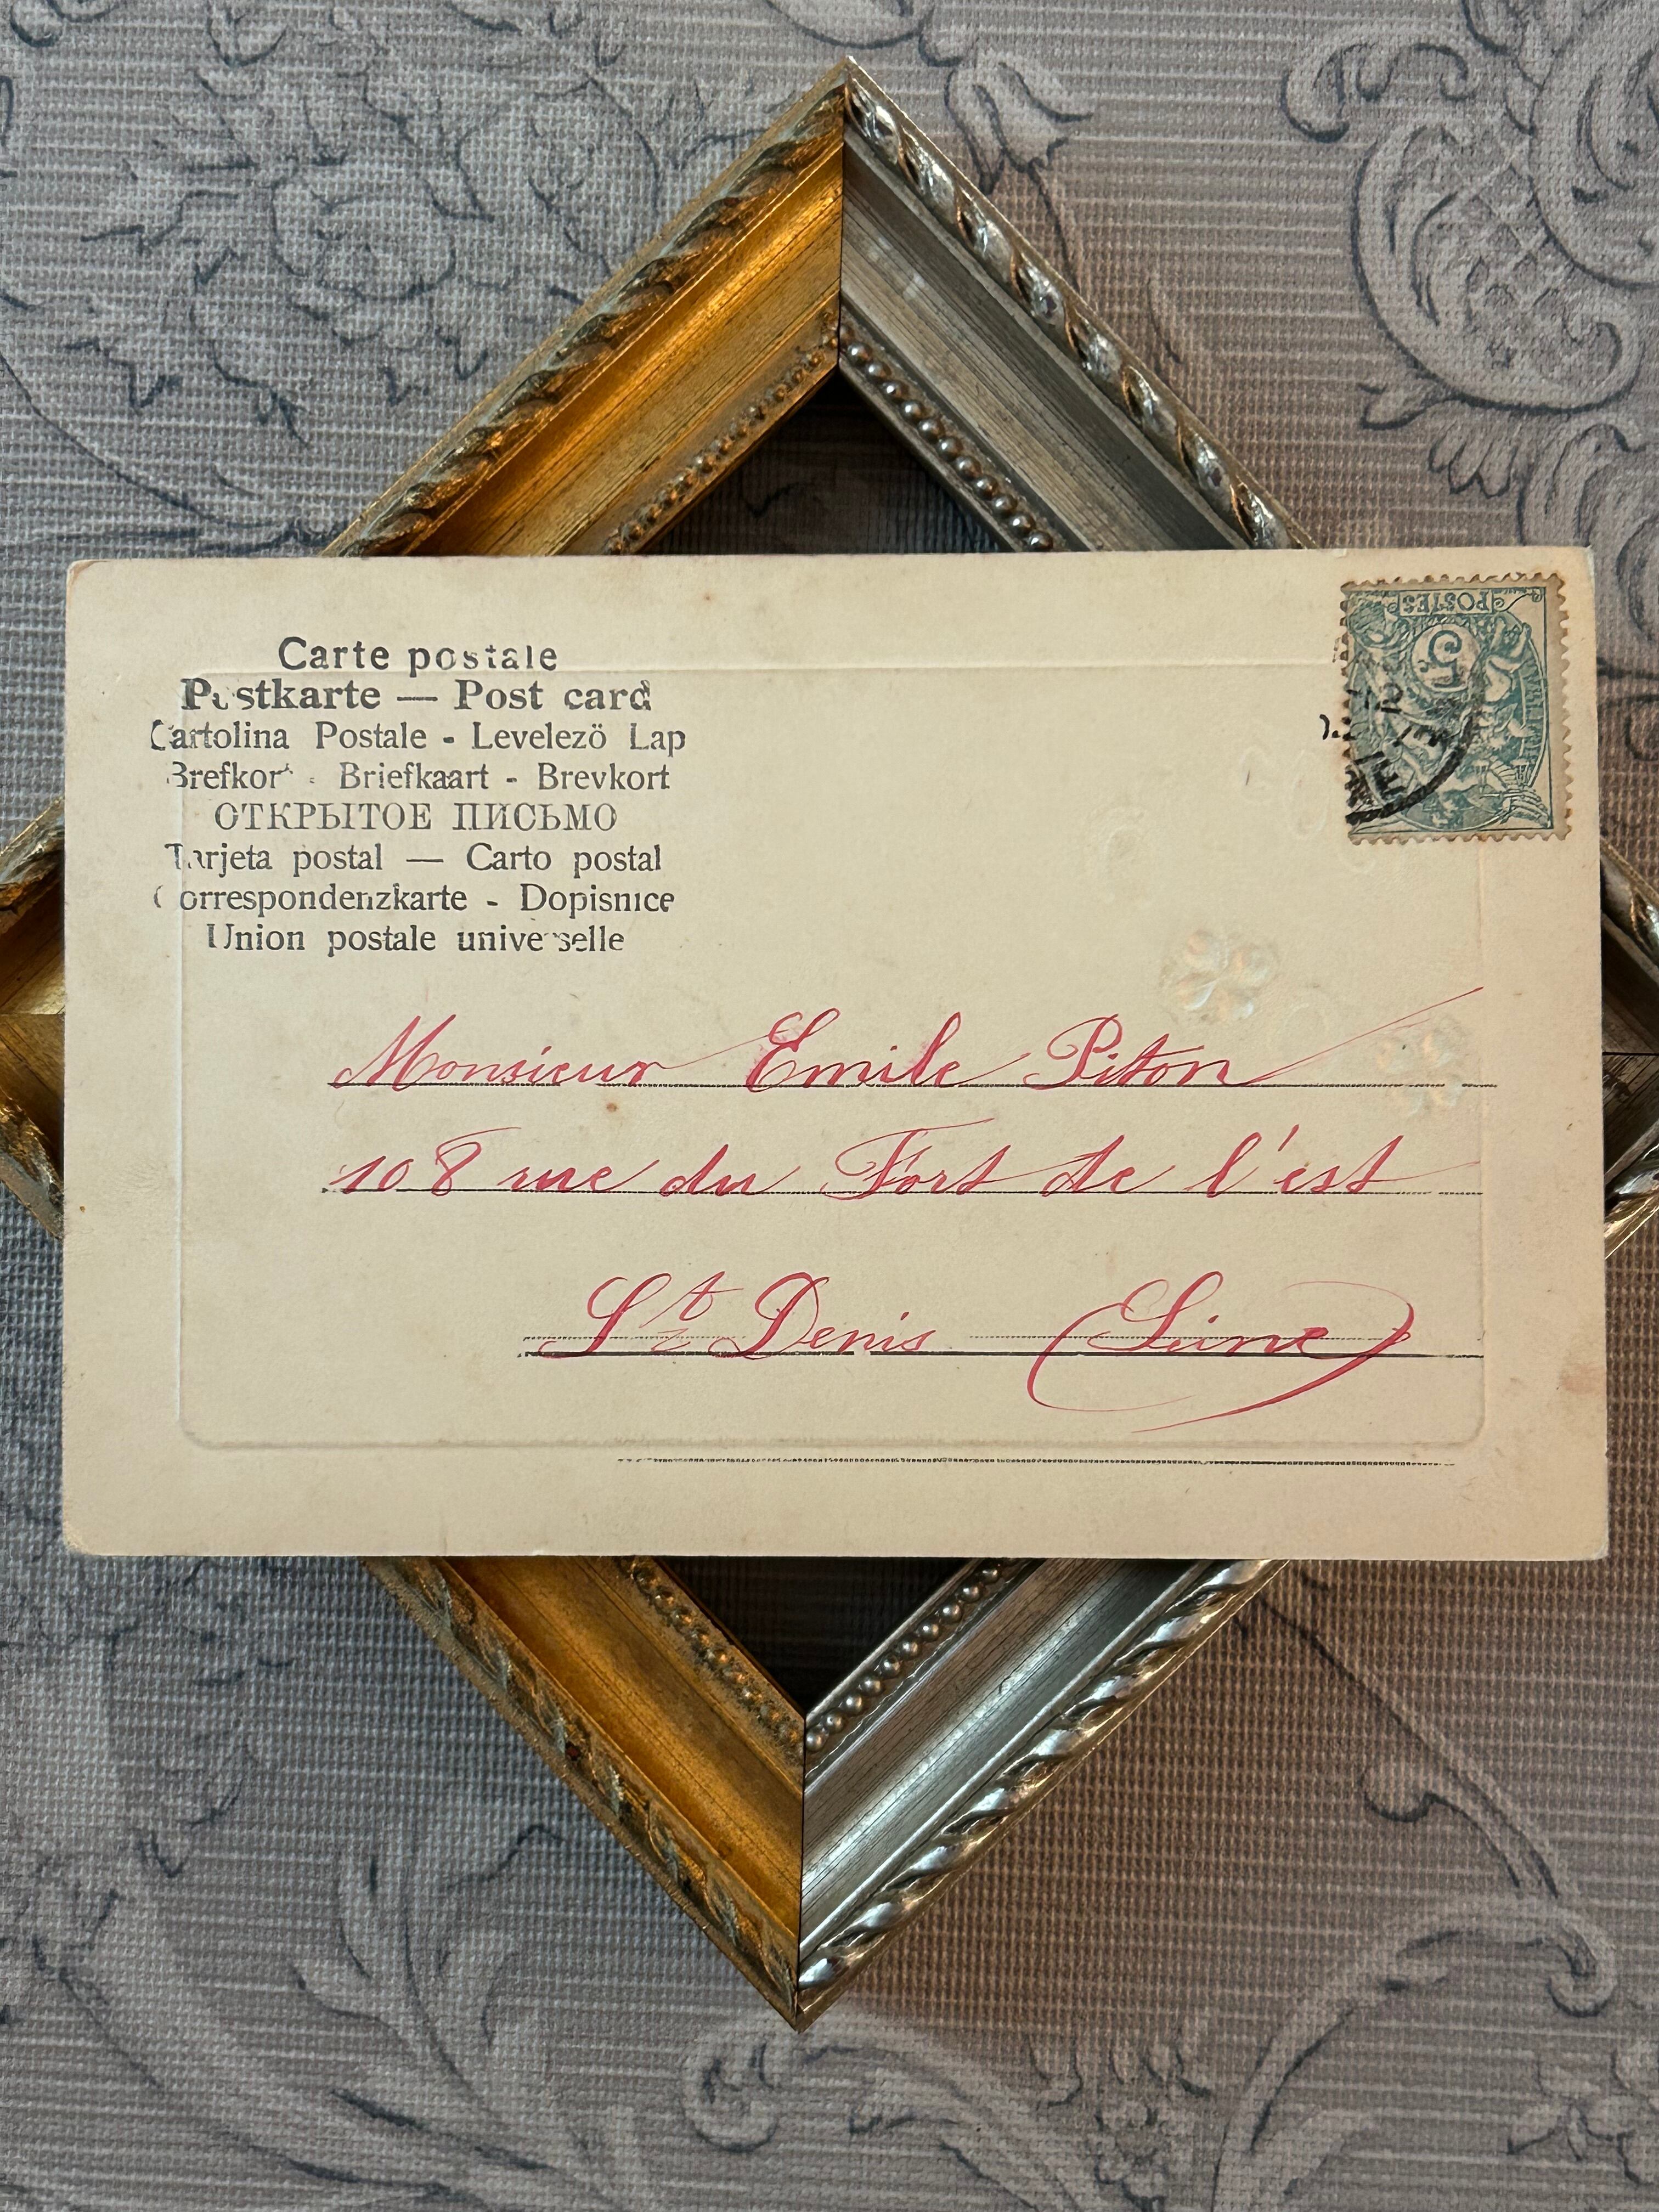 Carte postale
Postkarte — Post card
Cartolina Postale - Levelezö Lap
Brefkort - Briefkaart - Brevkort
ОТКРЫТОЕ ПИСЬМО
Tarjeta postal — Carto postal
Correspondenzkarte - Dopisnice
Union postale universelle
POSTES
5
Monsieur Emile Piton
108 rue du Fort de l'est
St Denis (Seine)